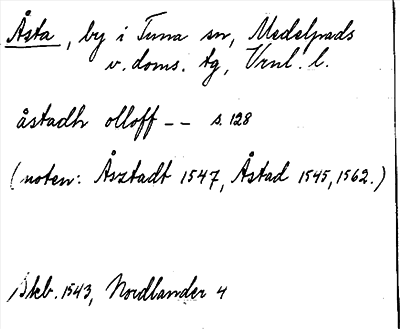 Åsta, by i Tuna sn, Medelpads
v. doms. tg, Vrnl. l.
åstadh olloff -- s. 128
(noten: Åsztadt 1547, Åstad 1545, 1562.)
Skb. 1543, Nordlander 4